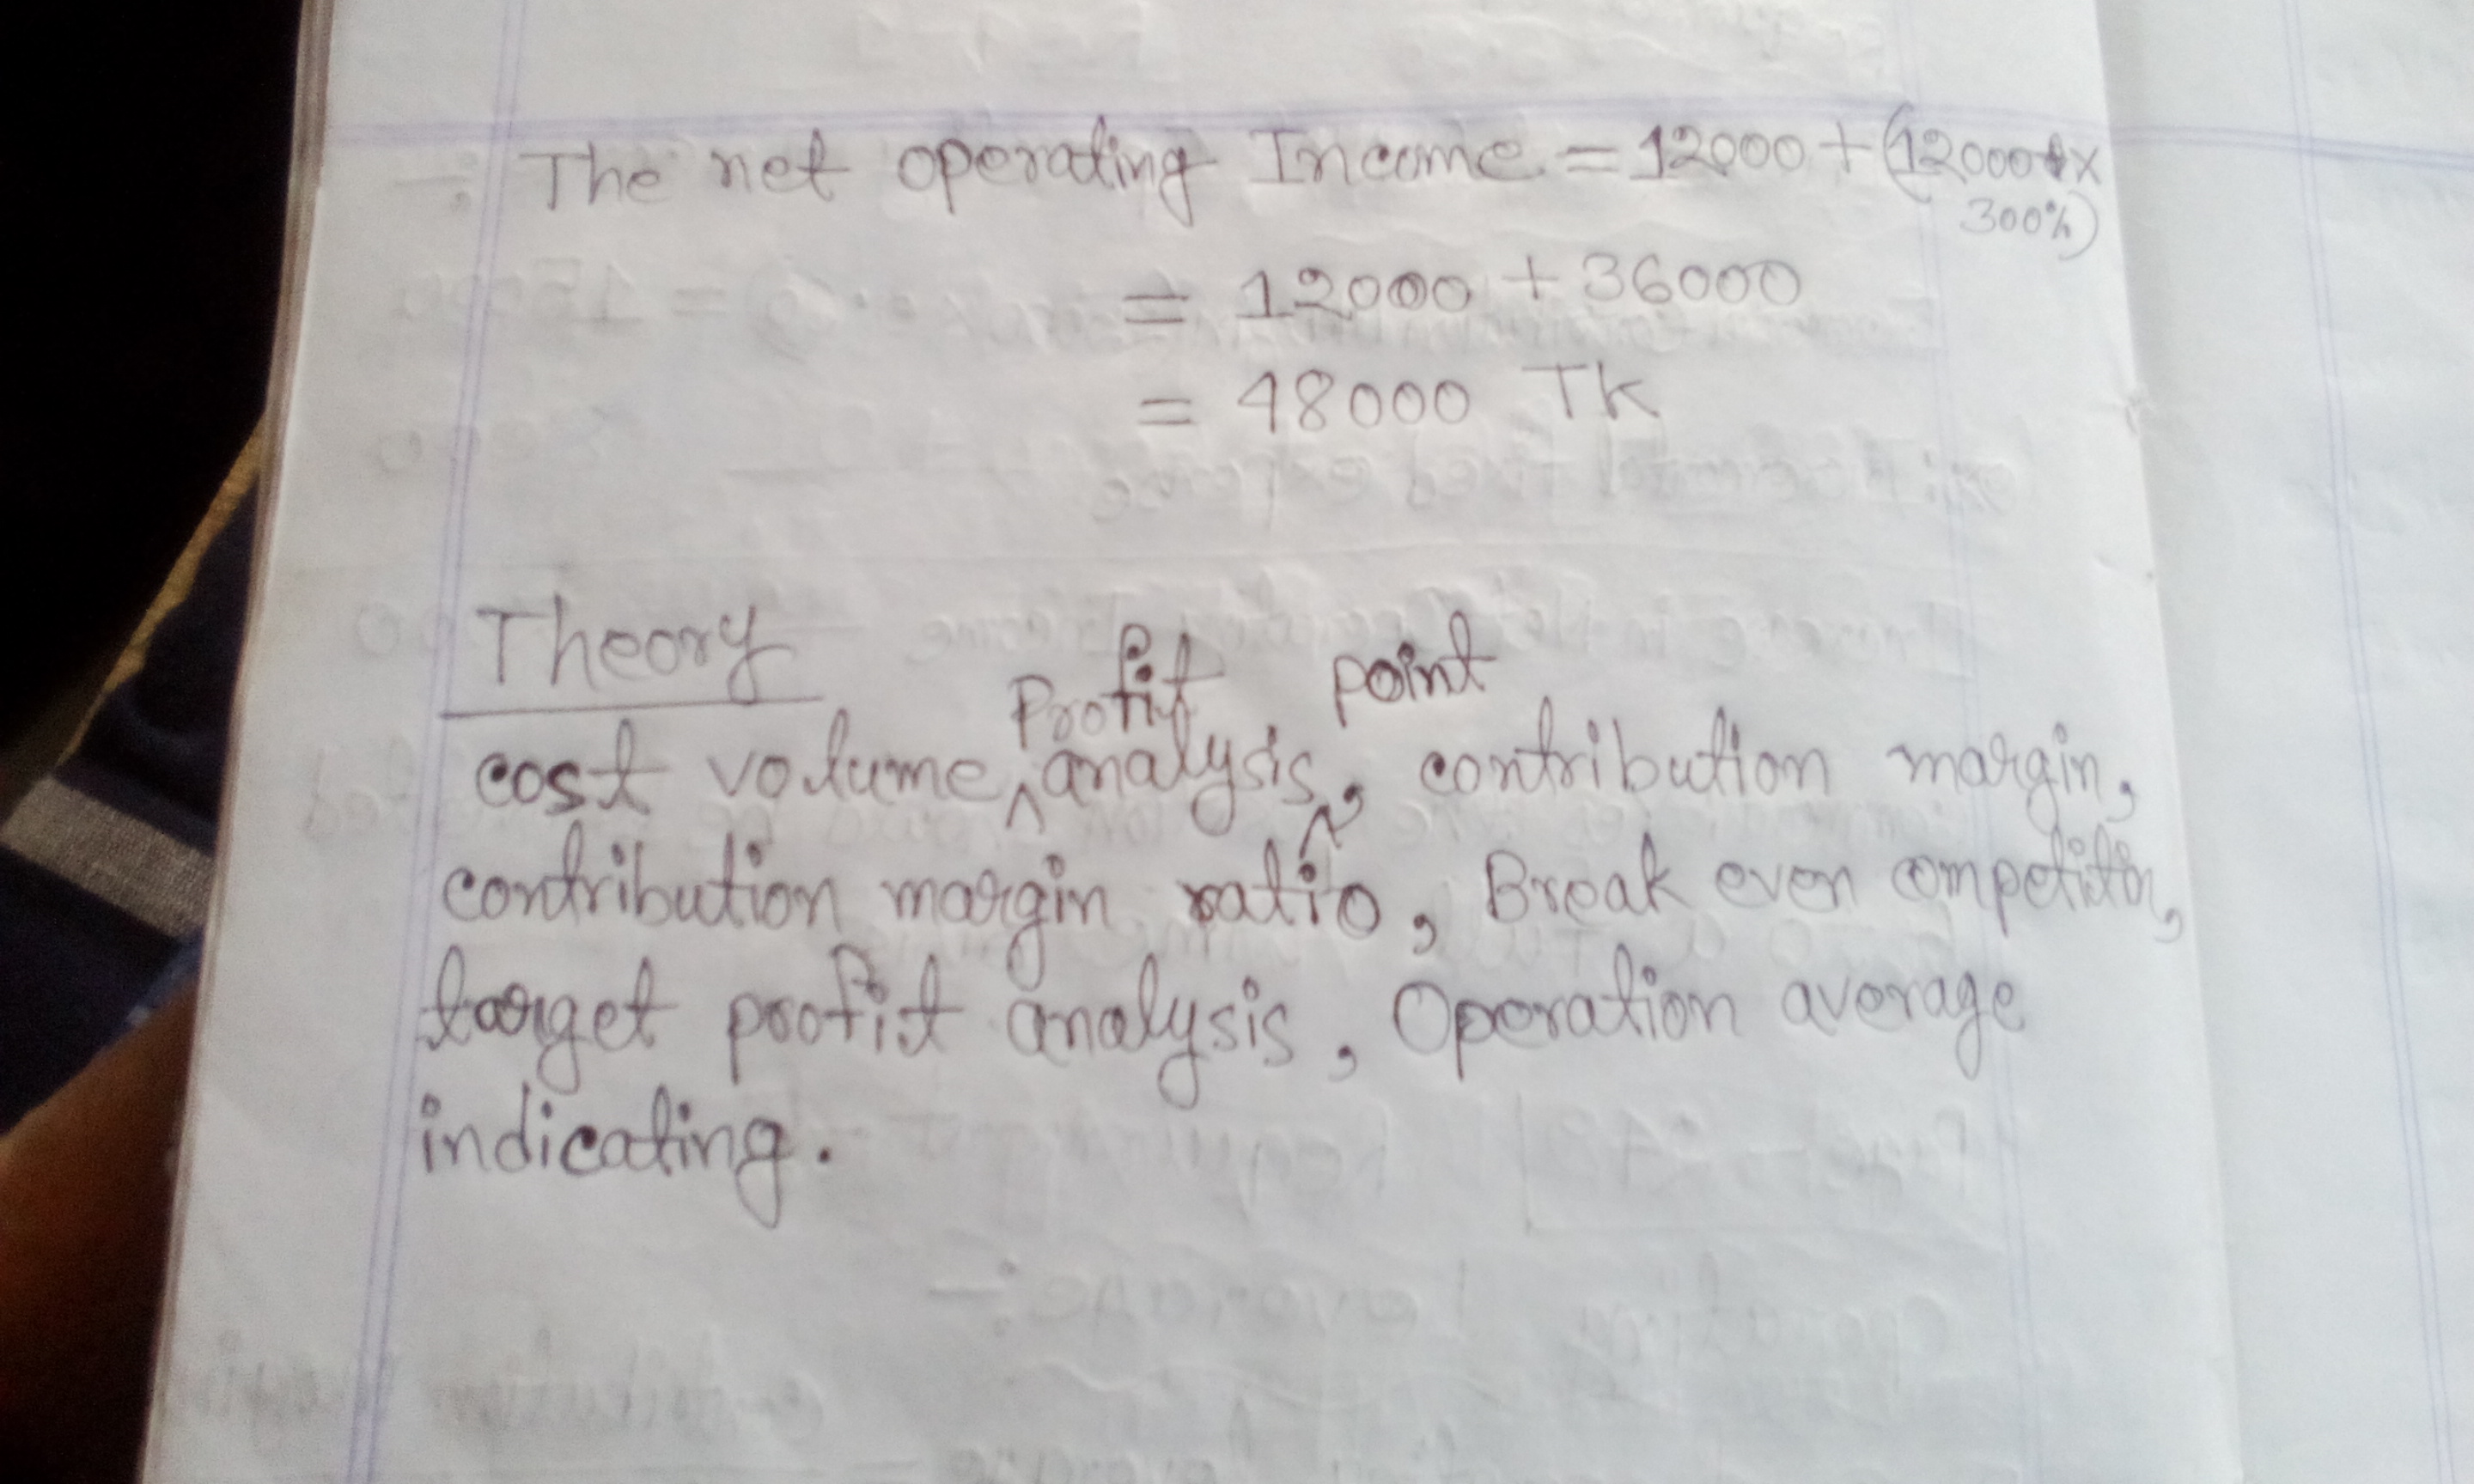 ∴ The net operating Income = 12000 + (12000 x
300%)
= 12000 + 36000
= 48000 Tk
Theory
Profit point
cost volume, analysis, contribution margin,
contribution margin ratio, Break even
target profit analysis, Operation average
indicating.